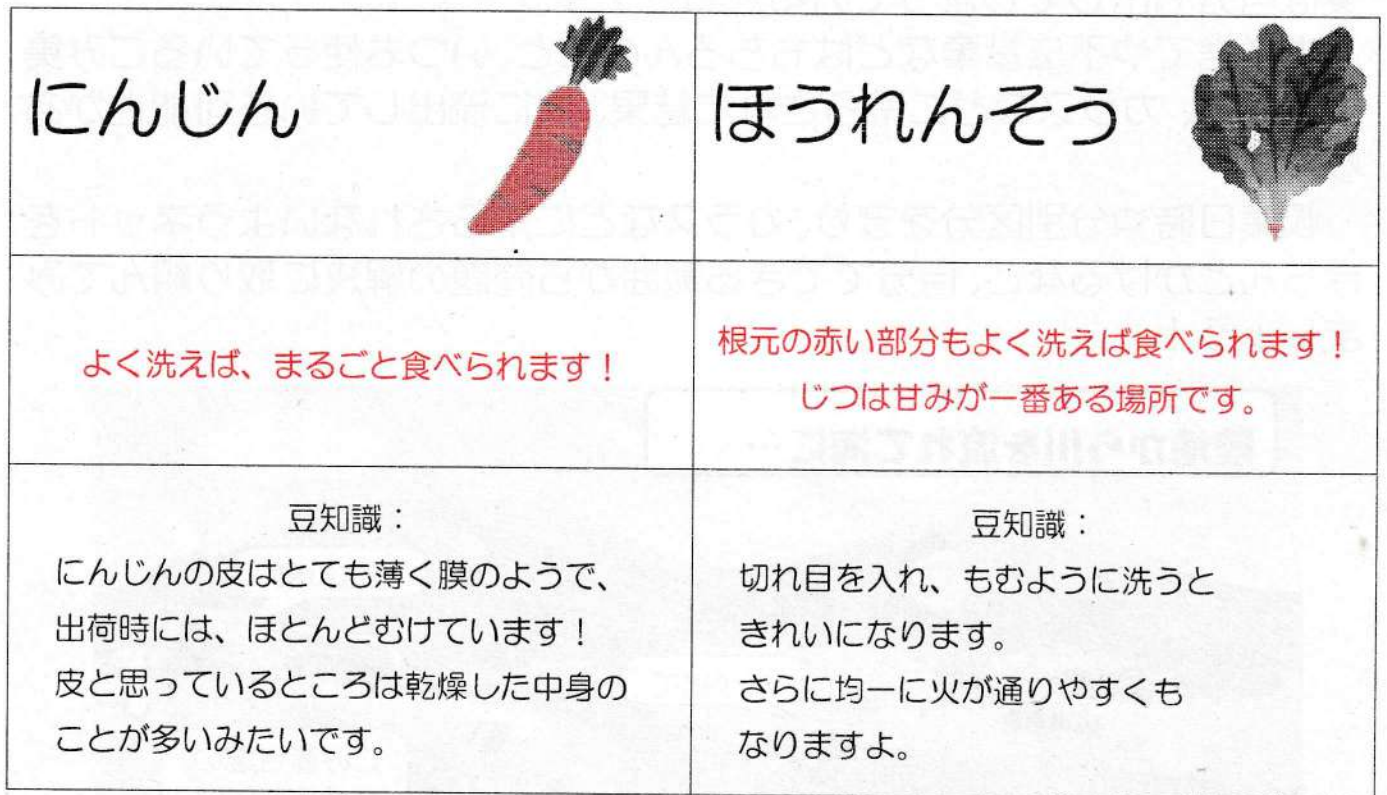 にんじん
ほうれんそう
よく洗えば、まるごと食べられます！
根元の赤い部分もよく洗えば食べられます！
じつは甘みが一番ある場所です。
豆知識：
にんじんの皮はとても薄く膜のようで、
出荷時には、ほとんどむけています！
皮と思っているところは乾燥した中身の
ことが多いみたいです。
豆知識：
切れ目を入れ、もむように洗うと
きれいになります。
さらに均一に火が通りやすくも
なりますよ。